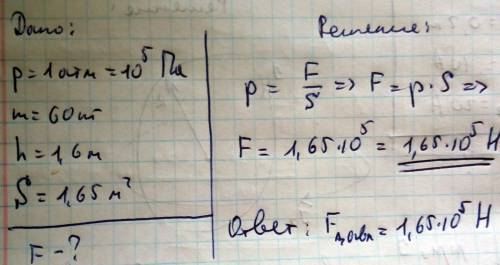 Дано:
p = 1 атм = 10⁵ Па
m = 60 кг
h = 1,6 м
S = 1,65 м²
F - ?
Решение:
p = F/S => F = p · S =>
F = 1,65·10⁵ = 1,65·10⁵ Н
Ответ: Fдавл = 1,65·10⁵ Н